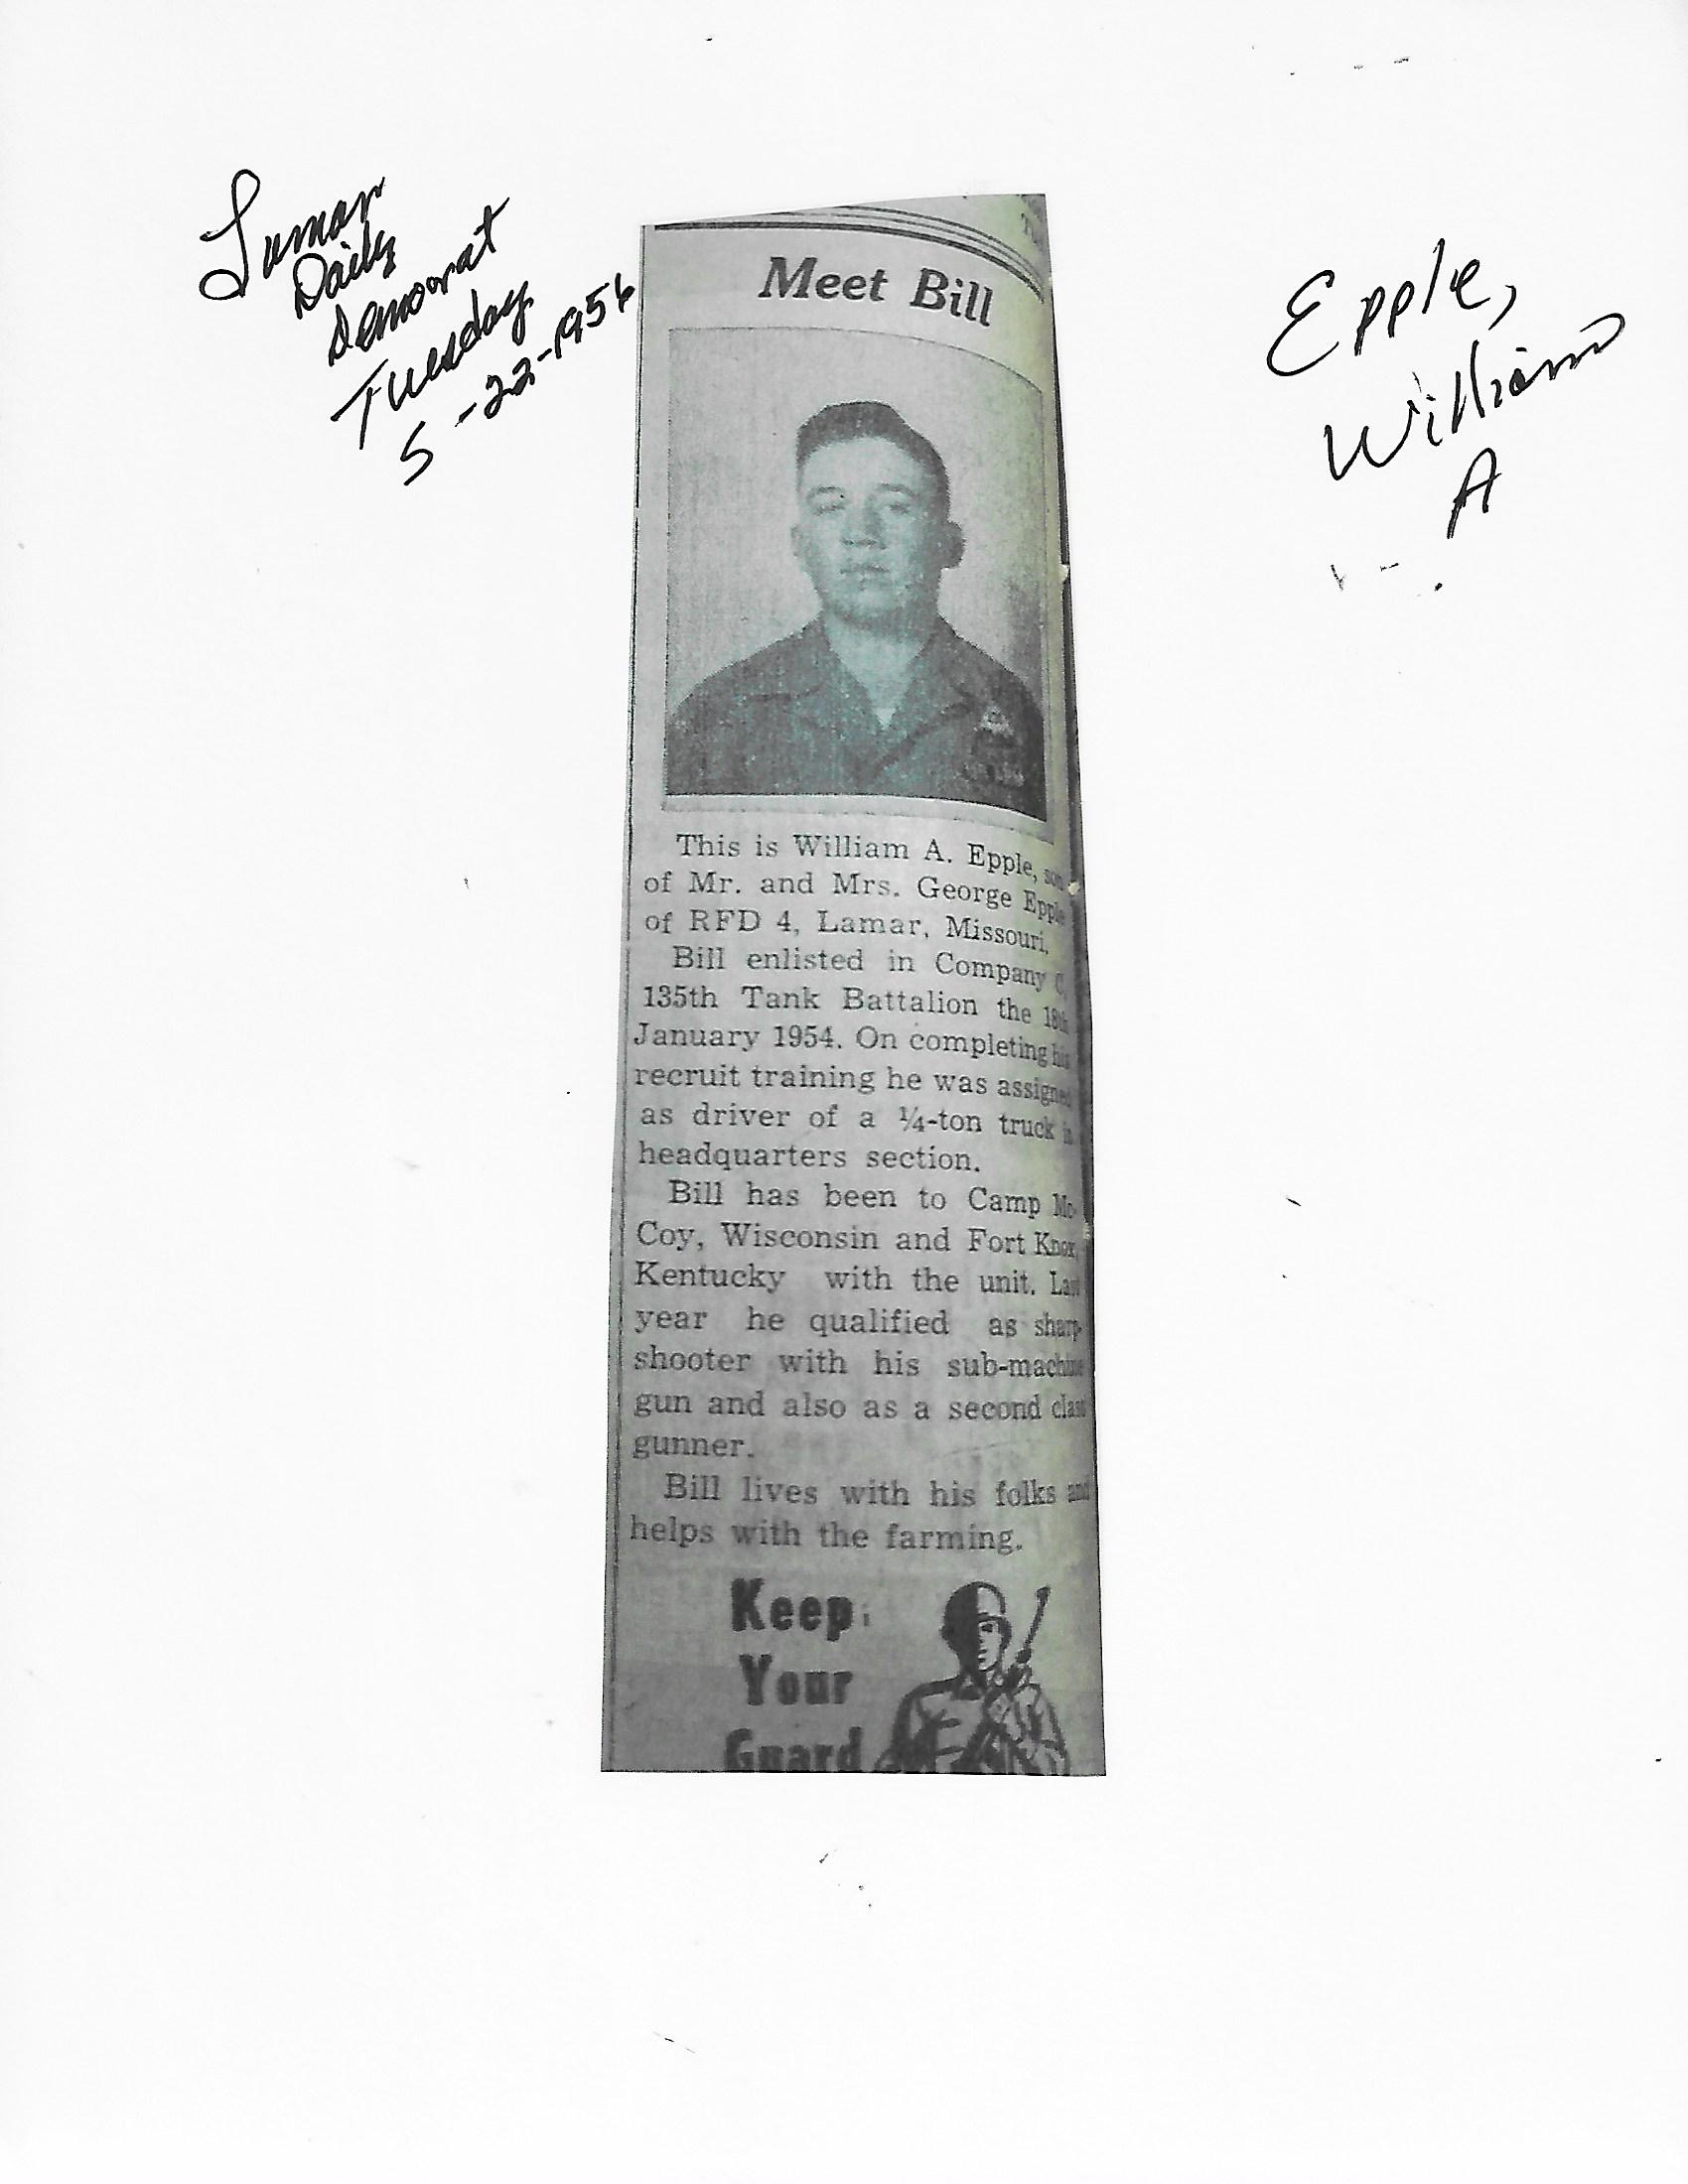 Lamar
Daily
Democrat
Tuesday
5-22-1956
Epple,
William
A
Meet Bill
This is William A. Epple, son
of Mr. and Mrs. George Epple
of RFD 4, Lamar, Missouri.
Bill enlisted in Company C,
135th Tank Battalion the 18th
January 1954. On completing his
recruit training he was assigned
as driver of a ¼-ton truck in
headquarters section.
Bill has been to Camp Mc-
Coy, Wisconsin and Fort Knox,
Kentucky with the unit. Last
year he qualified as sharp-
shooter with his sub-machine
gun and also as a second class
gunner.
Bill lives with his folks and
helps with the farming.
Keep
Your
Guard